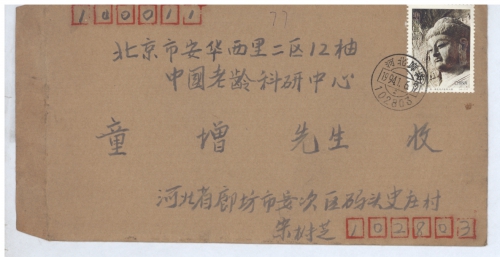 100011
77
北京市安华西里二区12楼
中國老龄科研中心
童增 先生 收
河北省廊坊市安次区码头史庄村
宋树芝 102803